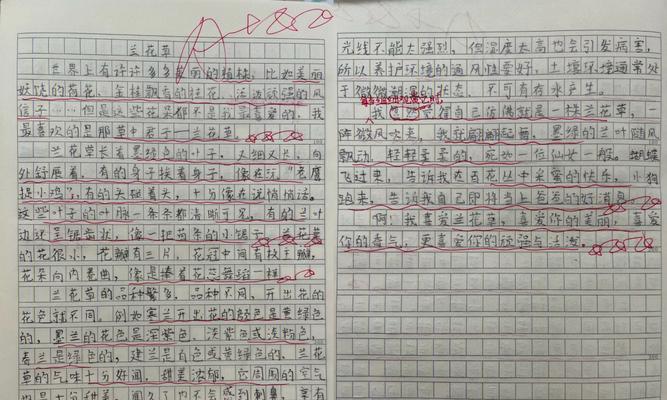 兰花草
世界上有许许多多美丽的植株，比如美丽
妖娆的荷花、金桂飘香的桂花、活泼顽强的风
信子……但是这些花朵都不是我最喜爱的，我
最喜欢的是那草中君子—兰花草。
兰花草长着墨绿色的叶子，又细又长，向
处舒展着，有的身子挨着身子，像在玩“老鹰
捉小鸡”，有的头碰着头，十分像在说悄悄话。
这些叶子的叶脉一条条都清晰可见，有的兰叶
边还呈锯齿状，像一把苗条的小锯子。兰花草
的花很小，花瓣有三片，花冠中间有一枚
花朵向内卷曲，像是捧着花蕊舞蹈一样。
兰花草的品种繁多，品种不同，开出花的
花色就不同。例如寒兰开出花的颜色是黄绿色
的，墨兰的花色是深紫色、淡紫色或淡粉色，
春兰是绿色的，建兰是白色或黄绿色的。兰花
草的气味十分好闻，甜美浓郁，它周围的空气
也是十分甜美，闻久了也不会感到刺鼻，享有
光线不能太强烈，但湿度太高也会引发病害，
所以养护环境的通风性要好，土壤环境通常处
于微微潮湿的状态，不可有存水产生。
我忽然觉得自己仿佛就是一株兰花草，一
阵微风吹来，我就翩翩起舞，墨绿的兰叶随风
飘动，轻轻柔柔的，宛如一位仙女一般。蝴蝶
飞过来，告诉我在百花丛中采蜜的快乐，小狗
跑来，告诉我自己即将当上爸爸的好消息。
啊！我喜爱兰花草，喜爱你的美丽，喜爱
你的香气，更喜爱你的顽强与活泼。